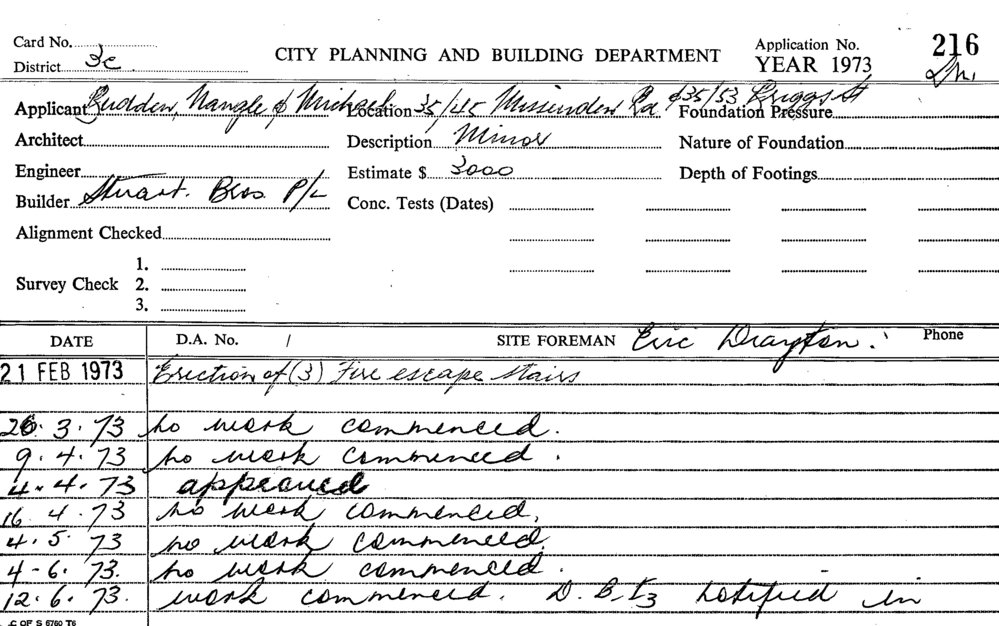 Card No.
District 3c
CITY PLANNING AND BUILDING DEPARTMENT
Application No. 216
YEAR 1973
Applicant Rudden, Nangle & Michael Location 35/45 Missenden Rd & 35/53 Briggs St Foundation Pressure
Architect Description Minor Nature of Foundation
Engineer Estimate $ 3000 Depth of Footings
Builder Stuart. Bros. P/L Conc. Tests (Dates)
Alignment Checked
1.
Survey Check 2.
3.
DATE D.A. No. / SITE FOREMAN Eric Drayton. Phone
21 FEB 1973 Erection of (3) Fire escape stairs
26. 3. 73 no work commenced.
9. 4. 73 no work commenced.
4. 4. 73 approved
16. 4. 73 no work commenced.
4. 5. 73 no work commenced.
4-6. 73. no work commenced.
12. 6. 73. work commenced. D. B. I3 notified in
C OF S 6760 T6